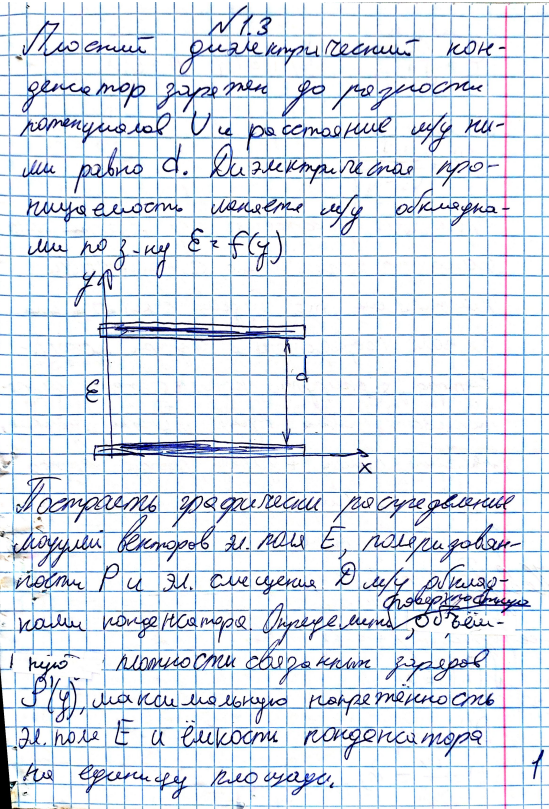 N 1.3
Плоский диэлектрический кон-
денсатор заряжен до разности
потенциалов U и расстояние м/у ни-
ми равно d. Диэлектрическая про-
ницаемость меняется м/у обкладка-
ми по з-ну ε = f(y)
y
d
ε
x
Построить графически распределение
модулей векторов эл. поля E, поляризован-
ности P и эл. смещения D м/у обклад-
поверхностную
ками конденсатора. Определить, объём-
ную плотности связанных зарядов
ρ'(y), максимальную напряжённость
эл. поля E и ёмкости конденсатора
на единицу площади.
1